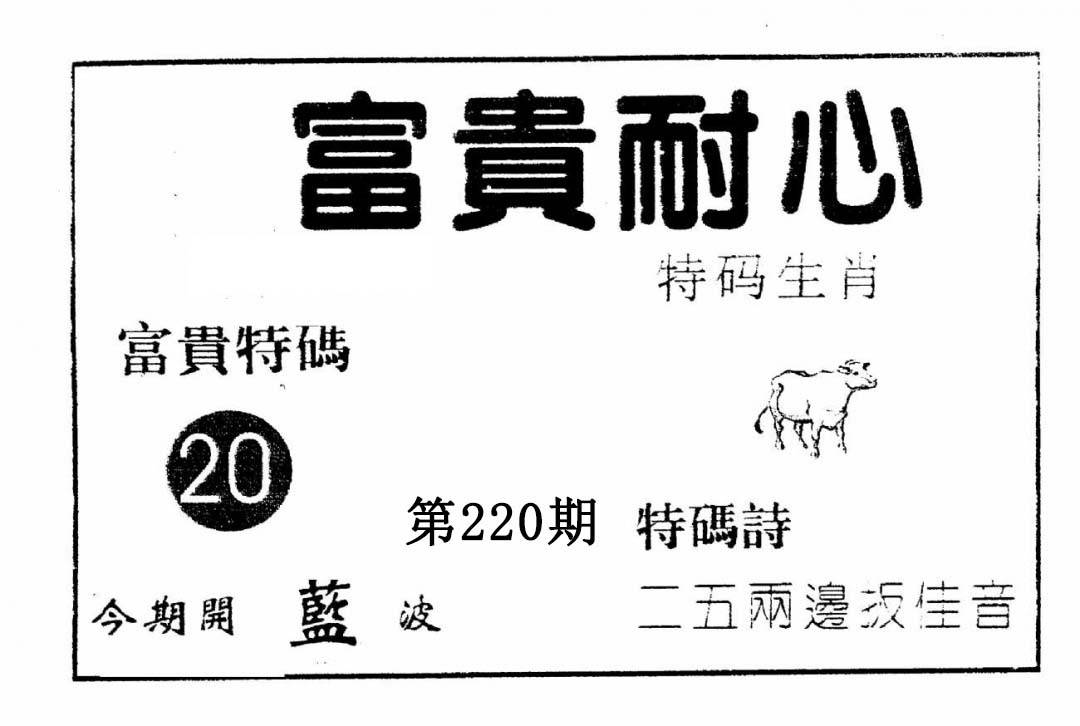 富貴耐心
特码生肖
富貴特碼
20
第220期
特碼詩
二五兩邊扳佳音
今期開 藍 波